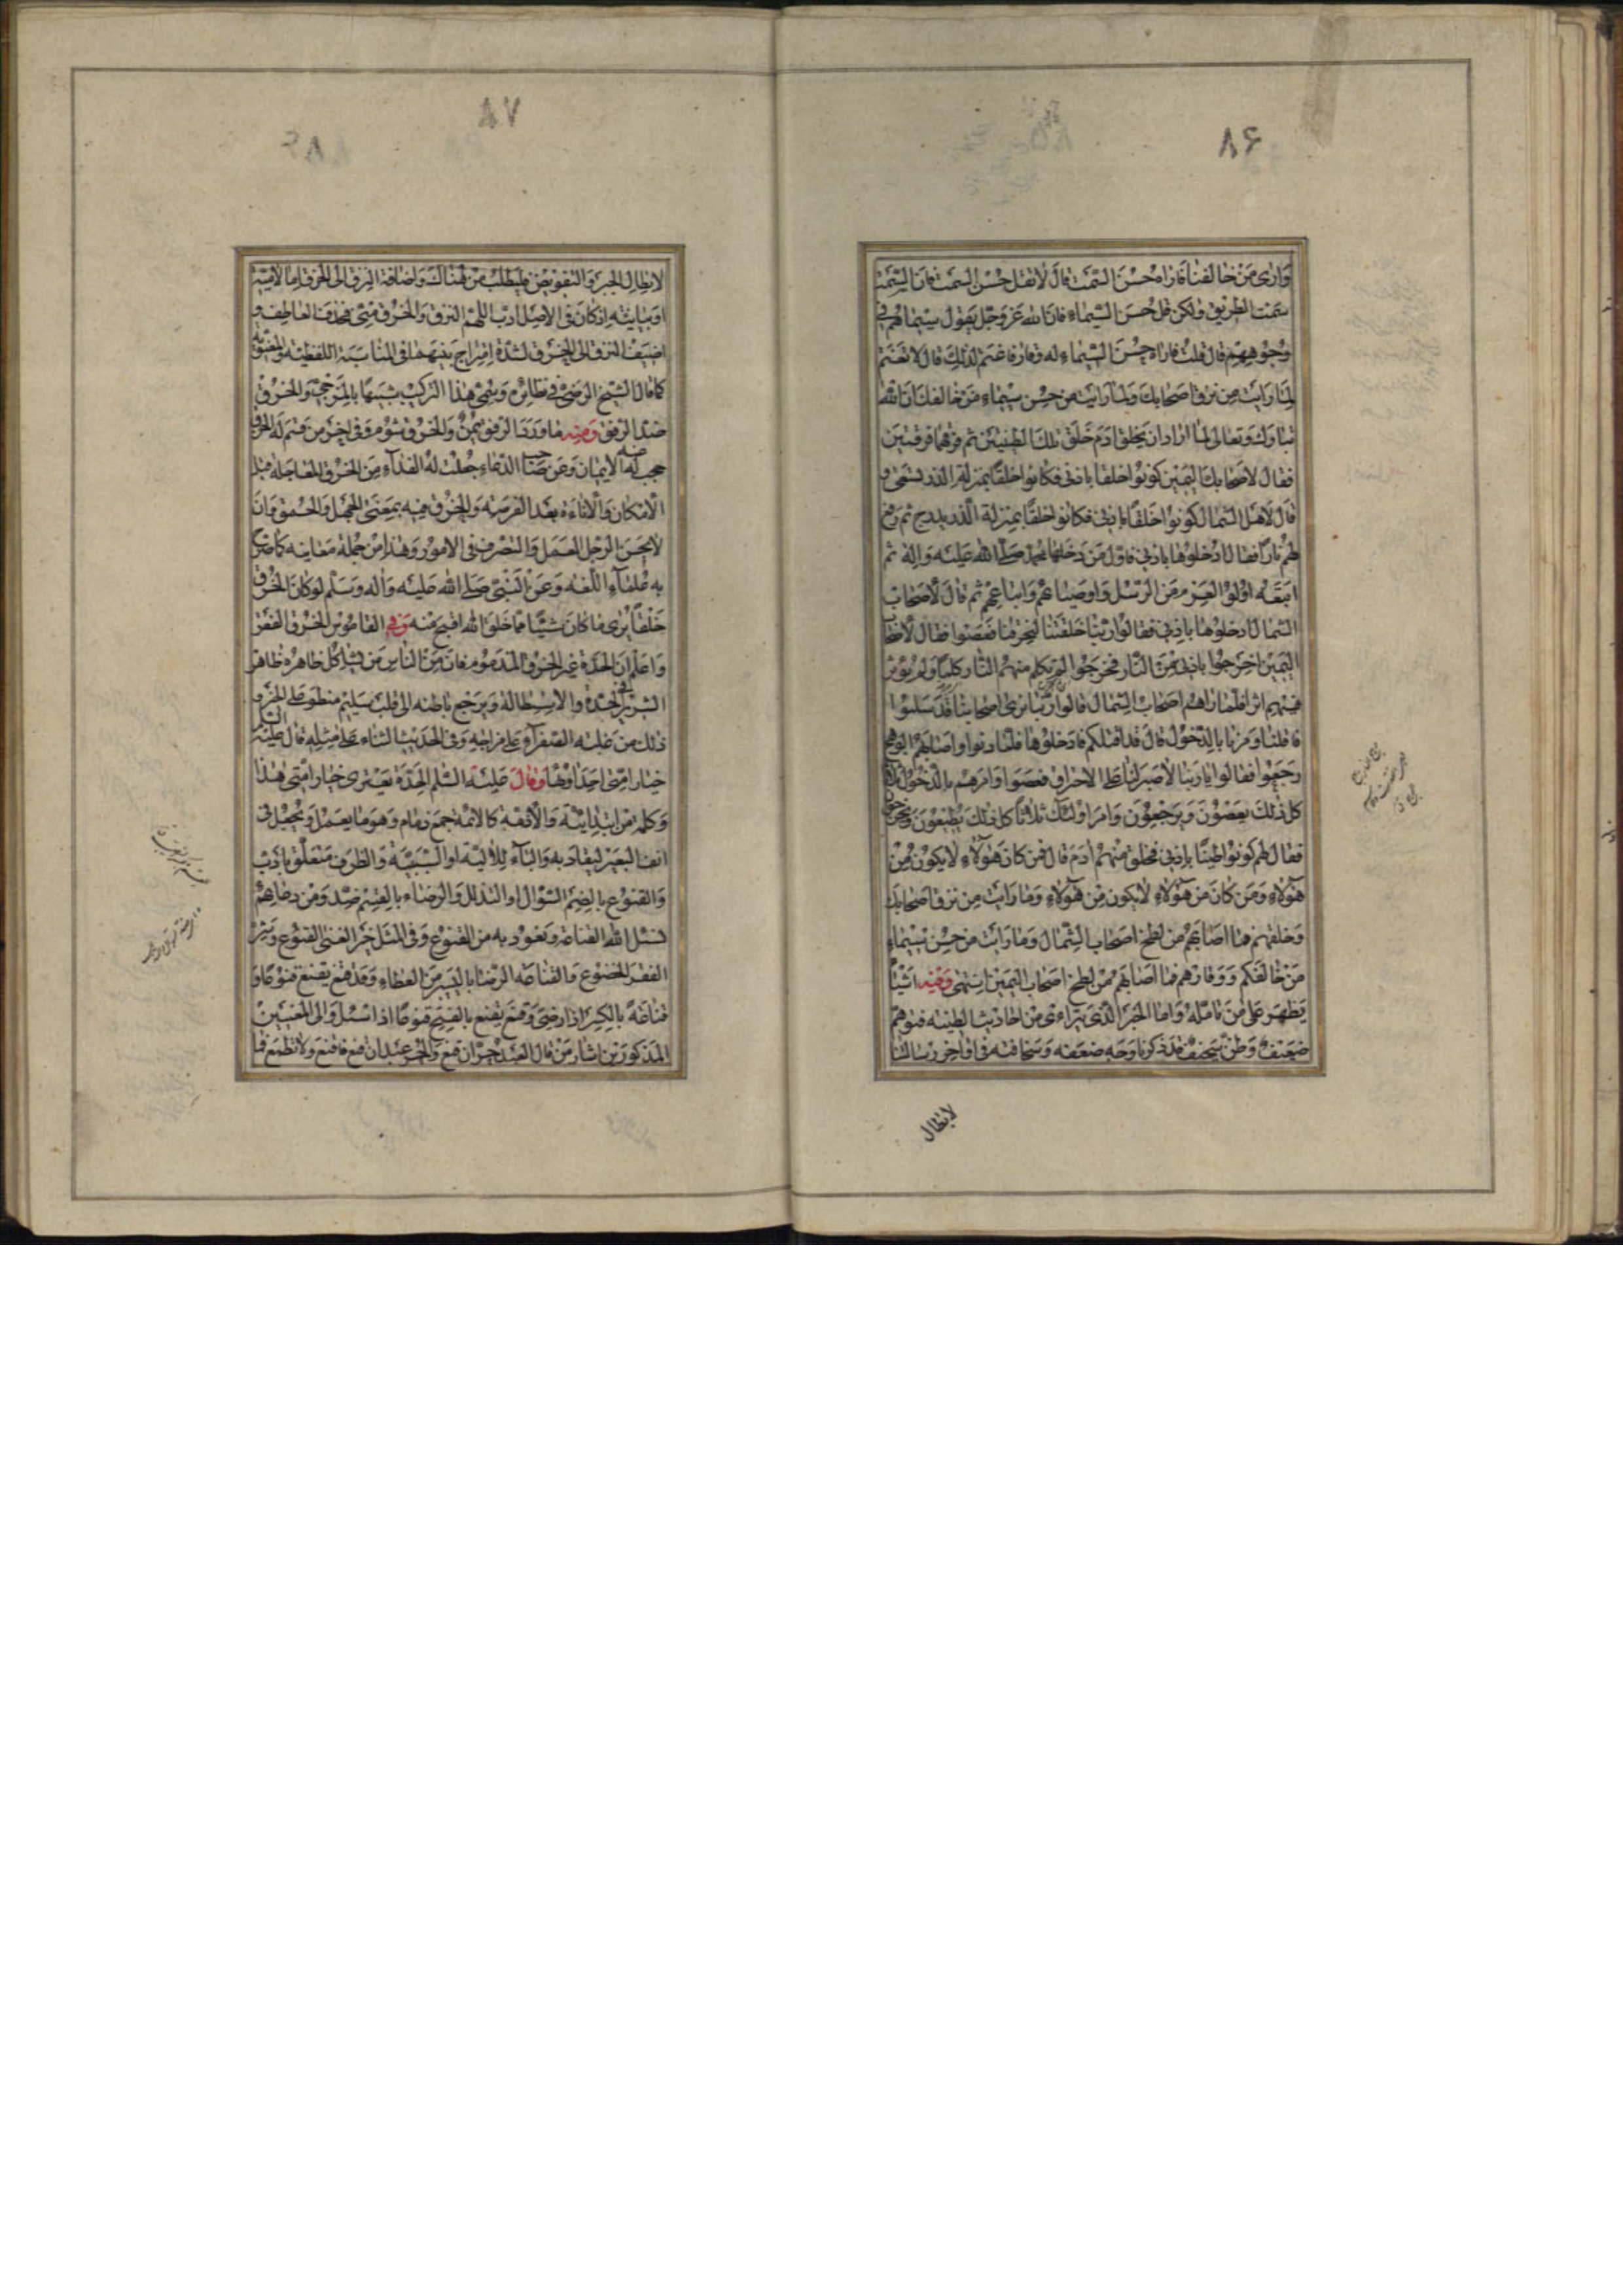 ٨۶
وارى من خالفنا فاراه حسن السمت قال لا تقل حسن السمت فان السمت
سمت الطريق ولكن قل حسن السيماء فان الله عز وجل يقول سيماهم في
وجوههم قال قلت فاراه حسن السيماء له وقار فاغتم لذلك قال لا تغتم
لما رايت من نزق اصحابك ولما رايت من حسن سيماء من خالفك ان الله
تبارك وتعالى لما اراد ان يخلق ادم خلق تلك الطينتين ثم فرقهما فرقتين
فقال لاصحاب اليمين كونوا خلقا باذنى فكانوا خلقا بمنزلة الذر يسعى و
قال لاهل الشمال كونوا خلقا باذنى فكانوا خلقا بمنزلة الذر يدرج ثم رفع
لهم نارا فقال ادخلوها باذني فاول من دخلها محمد صلى الله عليه واله ثم
اتبعه اولوا العزم من الرسل واوصيائهم واتباعهم ثم قال لاصحاب
الشمال ادخلوها باذنى فقالوا ربنا خلقتنا لتحرقنا فعصوا فقال لاصحاب
اليمين اخرجوا باذنى من النار فخرجوا لم تكلم منهم النار كلما ولم يؤثر
فيهم اثرا فلما راهم اصحاب الشمال قالوا ربنا نرى اصحابنا قد سلموا
فاقلنا ومرنا بالدخول قال قد اقلتكم فادخلوها فلما دنوا واصابهم الوهج
رجعوا فقالوا يا ربنا لا صبر لنا على الاحتراق فعصوا وامرهم بالدخول ثلاثا
كل ذلك يعصون ويرجعون وامر اولئك ثلاثا كل ذلك يطيعون ويخرجون
فقال لهم كونوا طينا باذنى فخلق منهم ادم قال فمن كان هؤلاء لا يكون من
هؤلاء ومن كان من هؤلاء لا يكون من هؤلاء وما رايت من نزق اصحابك
وخلقهم فما اصابهم من لطخ اصحاب الشمال وما رايت من حسن سيماء
من خالفكم ووقارهم فما اصابهم من لطخ اصحاب اليمين انتهى وفيه اشياء
يظهر على من تامله واما الجبر الذى يتراءى من احاديث الطينه فتوهم
ضعيف وظن سخيف قد ذكرنا وجه ضعفه وسخافته فى اواخر رسالتنا
لابطال
٨٧
لابطال الجبر والتفويض فليطلب من هناك واضافة النزق الى الخرق اما لامية
او بيانيه اذ كان فى الاصل ادب اللهم النزق والخرق منى فحذف العاطف و
اضيف النزق الى الخرق لشدة امتزاج بينهما فى المناسبة اللفظيه والمعنويه
كما قال الشيخ الرضى فى نظائره ويسمى هذا التركيب شبيها بالمزجى والخرق
ضد الرفق ومنه ما ورد الرفق يمن والخرق شؤم وفى اخر من قسم له الخرق
حجب عنه الايمان وعن صاحب الدعاء جعلت له الفداء من الخرق المعاجلة قبل
الامكان والاناءة بعد الفرصه والخرق فيه بمعنى الجهل والحمق وان
لا يحسن الرجل العمل والتصرف فى الامور وهذا من جملة معانيه كما صرح
به علماء اللغه وعن النبى صلى الله عليه واله وسلم لو كان الخرق
خلقا يرى ما كان شيئا مما خلق الله اقبح منه وفى القاموس الخرق القفر
واعلم ان الحدة غير الخرق المذموم فان من الناس من كل ظاهره ظاهر
الشرير فى الحدة والاستطالة ويرجع باطنه الى قلب سليم منطو على الخير و
ذلك من غلبه الصفراء على مزاجه وفى الحديث الثناء على مثله قال عليه السلم
خيار امتى احداؤها وقال عليه السلم الحدة تعترى خيار امتى هذا
وكلمة من ابتدائية والازمة كالائمه جمع زمام وهو ما يعمل ويجعل فى
انف البعير ليقاد به والباء للالية او السببية والظرف متعلق بادب
والقنوع بالضم السؤال او التذلل والرضاء بالقسم ضد ومن دعائهم
نسئل الله القناعة ونعوذ به من القنوع وفى المثل خير الغنى القنوع وشر
الفقر الخضوع والقناعه الرضا باليسير من العطاء وقد قنع يقنع قنوعا و
قناعة بالكسر اذا رضى وقنع يقنع بالفتح قنوعا اذا سئل والى المعنيين
المذكورين اشار من قال العبد حر ان قنع والحر عبد ان قنع فاقنع ولا تطمع فما